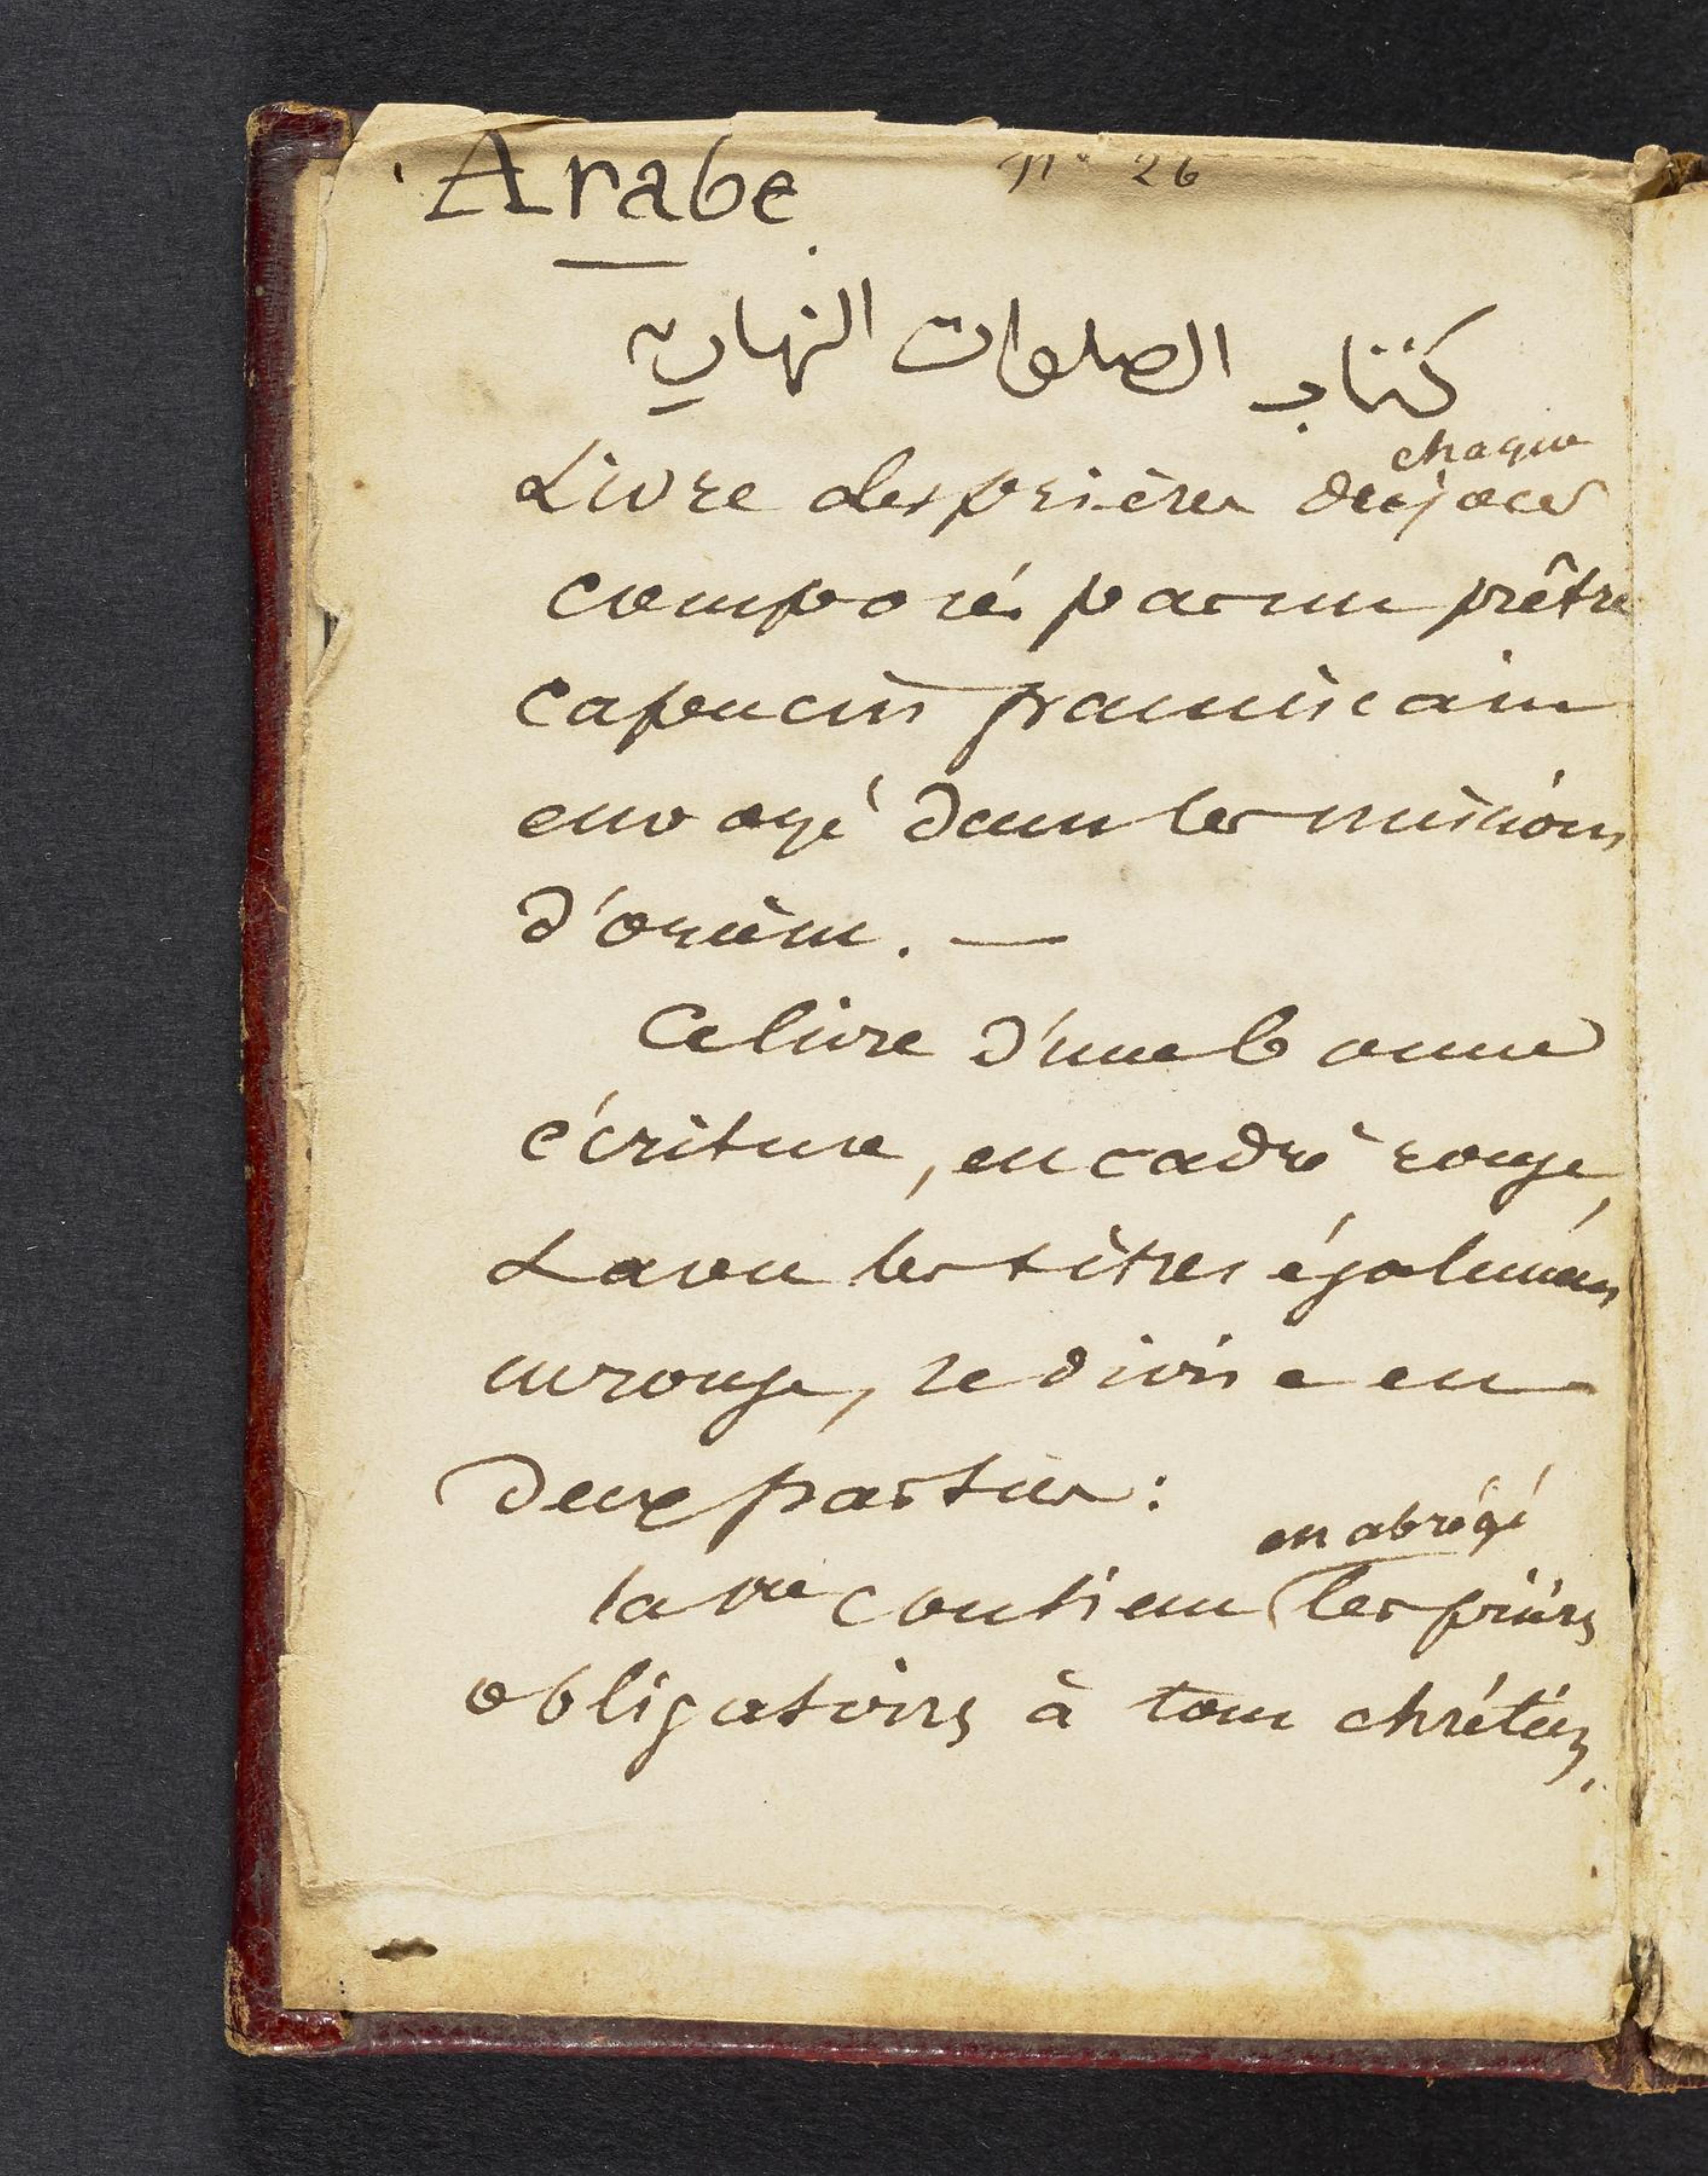 Arabe n° 26
كتاب الصلوات النهاريه
chaque
Livre des prières de jour
composé par un prêtre
capucin franciscain
envoyé dans les missions
d'orient. —
Ce livre d'une bonne
écriture, encadré rouge,
dans les titres également
en rouge, se divise en
deux parties :
en abrégé
la 1re contient les prières
obligatoires à tout chrétien,